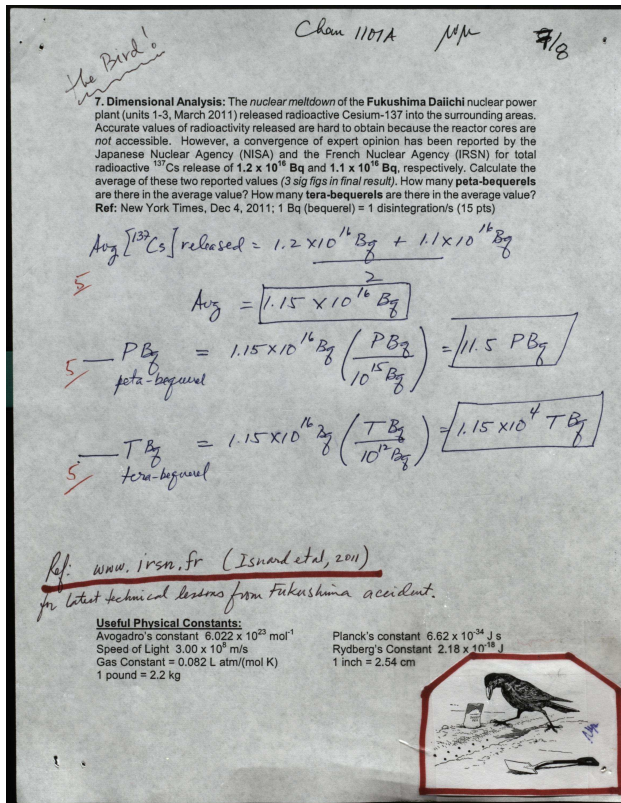 Chem 1101A
7/8
the Bird!
7. Dimensional Analysis: The nuclear meltdown of the Fukushima Daiichi nuclear power
plant (units 1-3, March 2011) released radioactive Cesium-137 into the surrounding areas.
Accurate values of radioactivity released are hard to obtain because the reactor cores are
not accessible. However, a convergence of expert opinion has been reported by the
Japanese Nuclear Agency (NISA) and the French Nuclear Agency (IRSN) for total
radioactive ¹³⁷Cs release of 1.2 x 10¹⁶ Bq and 1.1 x 10¹⁶ Bq, respectively. Calculate the
average of these two reported values (3 sig figs in final result). How many peta-bequerels
are there in the average value? How many tera-bequerels are there in the average value?
Ref: New York Times, Dec 4, 2011; 1 Bq (bequerel) = 1 disintegration/s (15 pts)
Avg [¹³⁷Cs] released = 1.2 x10¹⁶ Bq + 1.1x10¹⁶ Bq
2
5
Avg = 1.15 x10¹⁶ Bq
5 ___ PBq = 1.15x10¹⁶ Bq (PBq / 10¹⁵ Bq) = 11.5 PBq
peta-bequerel
5 ___ TBq = 1.15x10¹⁶ Bq (TBq / 10¹² Bq) = 1.15 x10⁴ TBq
tera-bequerel
Ref: www.irsn.fr (Isnard et al, 2011)
for latest technical lessons from Fukushima accident.
Useful Physical Constants:
Avogadro's constant 6.022 x 10²³ mol⁻¹ Planck's constant 6.62 x 10⁻³⁴ J s
Speed of Light 3.00 x 10⁸ m/s Rydberg's Constant 2.18 x 10⁻¹⁸ J
Gas Constant = 0.082 L atm/(mol K) 1 inch = 2.54 cm
1 pound = 2.2 kg